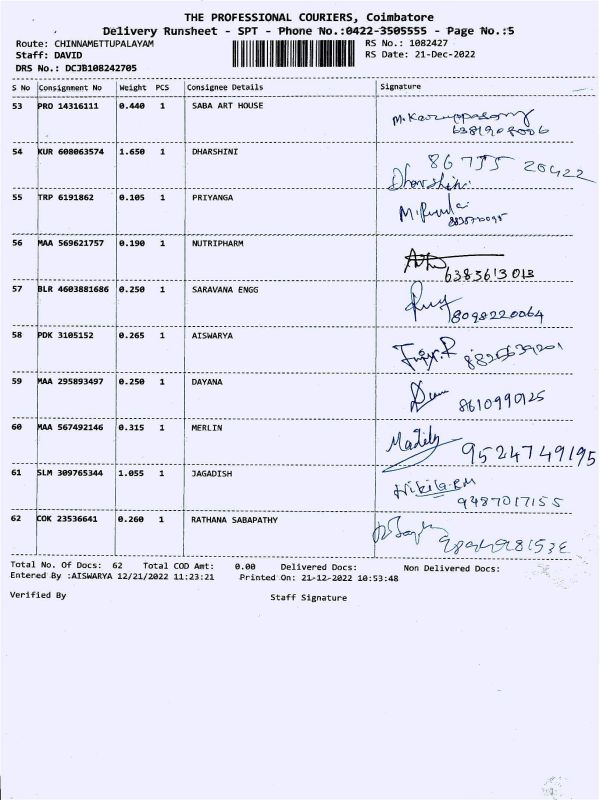 THE PROFESSIONAL COURIERS, Coimbatore
Delivery Runsheet - SPT - Phone No.:0422-3505555 - Page No.:5
Route: CHINNAMETTUPALAYAM RS No.: 1082427
Staff: DAVID RS Date: 21-Dec-2022
DRS No.: DCJB108242705
S No Consignment No Weight PCS Consignee Details Signature
53 PRO 14316111 0.440 1 SABA ART HOUSE
M. Karuppasamy
54 KUR 608063574 1.650 1 DHARSHINI
Dharshini.
55 TRP 6191862 0.105 1 PRIYANGA
56 MAA 569621757 0.190 1 NUTRIPHARM
6383613013
57 BLR 4603881686 0.250 1 SARAVANA ENGG
8098220064
58 PDK 3105152 0.265 1 AISWARYA
59 MAA 295893497 0.250 1 DAYANA
60 MAA 567492146 0.315 1 MERLIN
9524749195
61 SLM 309765344 1.055 1 JAGADISH
9487017155
62 COK 23536641 0.260 1 RATHANA SABAPATHY
Total No. Of Docs: 62 Total COD Amt: 0.00 Delivered Docs: Non Delivered Docs:
Entered By :AISWARYA 12/21/2022 11:23:21 Printed On: 21-12-2022 10:53:48
Verified By Staff Signature